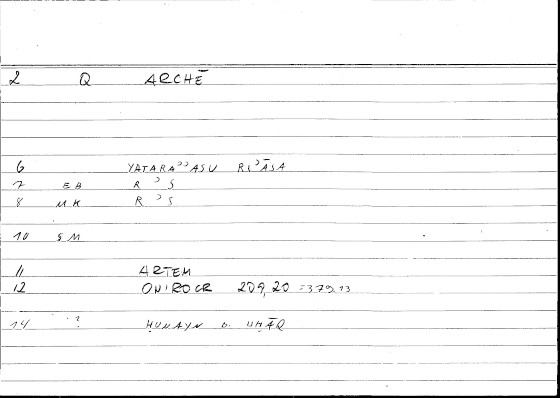 2 Q ARCHĒ
6 YATARAʾʾASU RIʾĀSA
7 EB R ʾ S
8 MK R ʾ S
10 SM
11 ARTEM
12 ONIROCR 209,20 = 379,13
14 ? ḤUNAYN B.